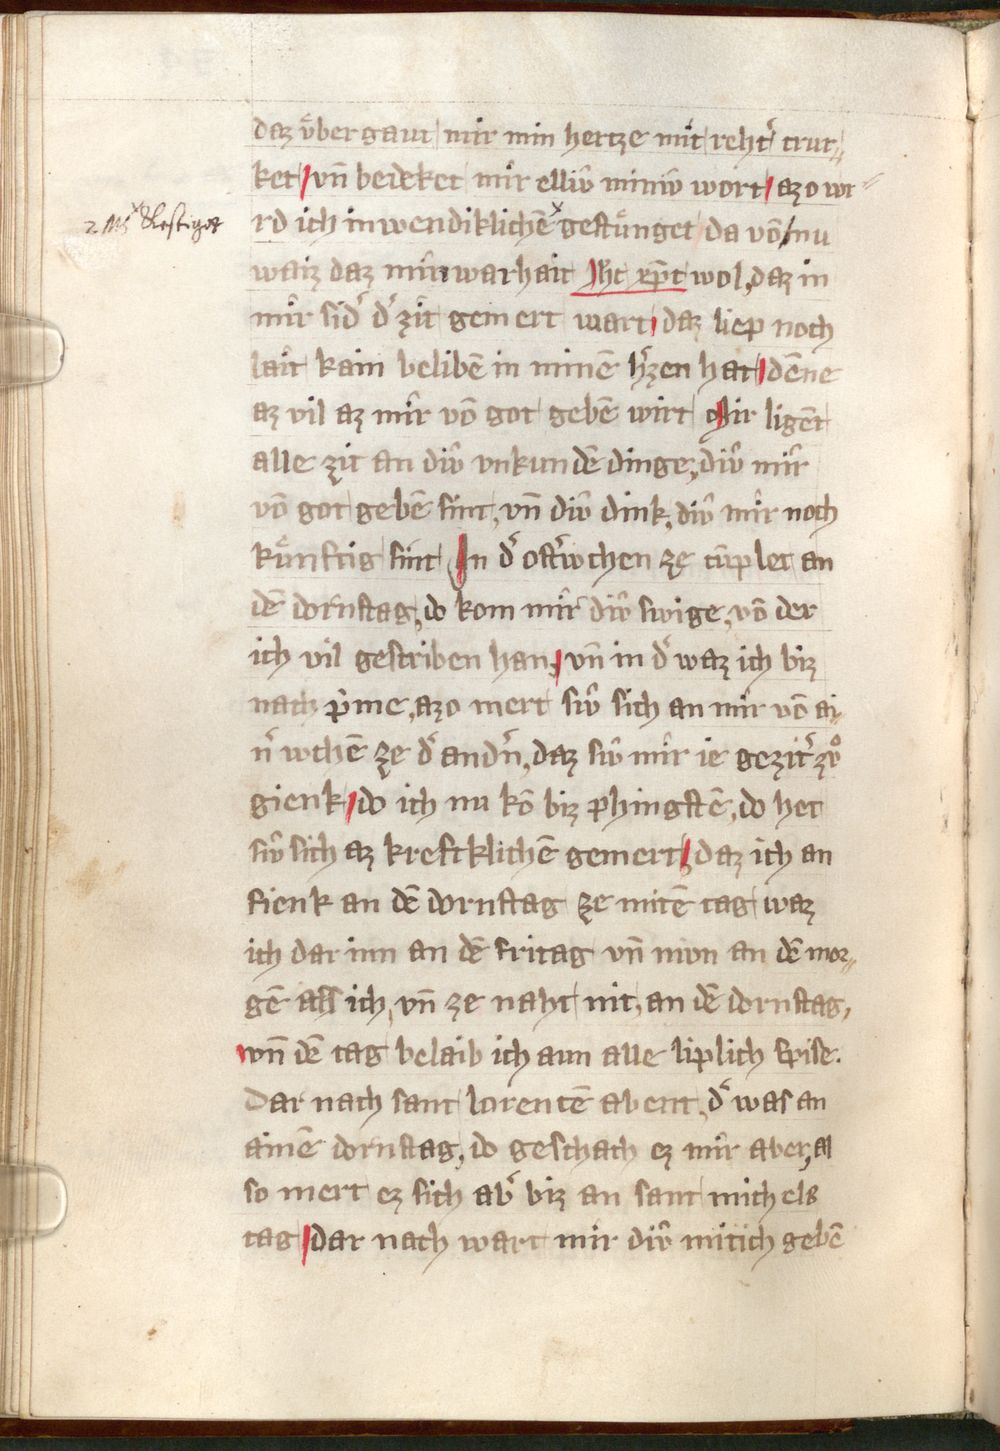 daz v̊ber gaut mir min hertze mit reht͛ trut⸗
ket / vn̄ bedeket mir elliv̂ miniv̂ wort / azo wi⸗
rd ich inwendiklichē gestůnget da vō / nu
waiz daz min warhait Jhc xp̄c wol, daz in
mir sid͛ d͛ zit gemert wart / daz liep noch
lait kain belibē in minē h͛zen hat / dēne
az vil az mir vō got gebē wirt Mir ligēt
alle zit an div̂ vnkundē dinge, div̂ mir
vō got gebē sint, vn̄ div̂ dink, div̂ mir noch
kůnftig sint In d͛ ost͛wchen ze
an
dē dornstag, do kom mir div̂ swige, vō der
ich vil gescriben han, / vn̄ in d͛ waz ich biz
nach p͛me, azo mert siv̂ sich an mir vō ai⸗
n͛ wchē ze d͛ andn͛, daz siv̂ mir ie gezit͛ zů
gienk / do ich nu kō biz phingstē, do het
siv̂ sich az kreftklichē gemert / daz ich an
fienk an dē dornstag ze mitē tag waz
ich dar inn an dē fritag vn̄ mon an dē mor⸗
gē ass ich, vn̄ ze naht nit, an dē dornstag,
vn̄ dē tag belaib ich aun alle liplich spise.
Dar nach sant lorentē abent, d͛ was an
ainē dornstag, do geschach ez mir aber, al
so mert ez sich ab͛ biz an sant michels
tag / dar nach wart mir div̂ mitich gebē